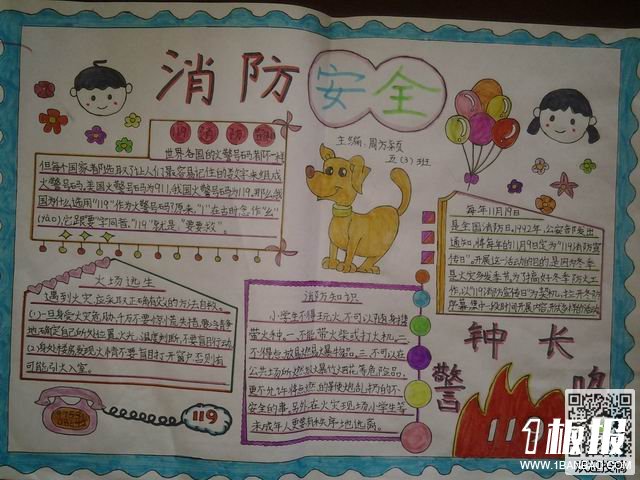 消防
安全
主编:周芳颖
五(3)班
世界各国的火警号码都不一样
但每个国家都选取了让人们最容易记住的数字来组成
火警号码,美国火警号码为911,我国火警号码为119。那么我
国为什么选用"119"作为火警号码?原来,"1"在古时念作"幺"
(yāo)它跟"要"字同音。"119"就是"要要救"。
每年11月9日
是全国消防日。1992年,公安部发出
通知,将每年的11月9日定为"119消防宣
传日"。开展这一活动的目的是因为冬季
是火灾多发季节,为了搞好冬季防火工
作,以"119消防宣传日"为契机
火场逃生
遇到火灾,应采取正确有效的方法自救。
(1)一旦身受火灾危胁,千万不要惊慌失措,要冷静
地确定自己所处位置,火光、温度判断,不要盲目行动
(2)身处楼房发现火情不要盲目打开窗户,否则有
可能引火入室。
消防知识
小学生不得玩火,不可以随身携
带火种。一、不能带火柴或打火机,二、
不得点放易燃易爆物品。三、不可以在
公共场所燃放爆竹烟花等危险品,
更不允许将点燃的
安全的事,另外在火灾现场小学生等
未成年人更要有秩序地远离。
119
警
钟
长
鸣
119
1板报
WWW.1BANBAO.COM